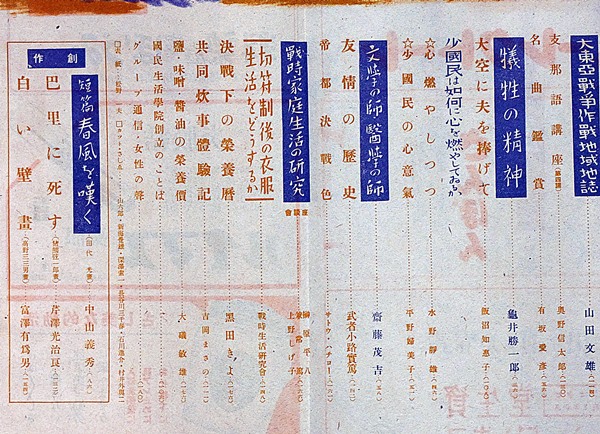 大東亜戰爭作戰地域地誌 山田文雄
支那語講座 奥野信太郎
名曲鑑賞 有坂愛彦
犠牲の精神 龜井勝一郎
大空に夫を捧げて 飯沼知惠子
少國民は如何に心を燃やしてゐるか
☆心燃やしつつ 水野靜雄
☆少國民の心意氣 平野婦美子
文學の師醫學の師 齋藤茂吉
友情の歴史 武者小路實篤
帝都決戰色 サトウ・ハチロー
戰時家庭生活の研究
座談會
榊原平八
上野しげ子
切符制後の衣服
生活をどうするか
戰時生活研究會
決戰下の榮養暦 黒田きよ
共同炊事體驗記 吉岡まさの
鹽・味噌・醤油の榮養價 大磯敏雄
國民生活學院創立のことば
グループ通信・女性の聲
創作
短篇 春風を嘆く 中山義秀
巴里に死す 芹澤光治良
白い壁畫 富澤有爲男